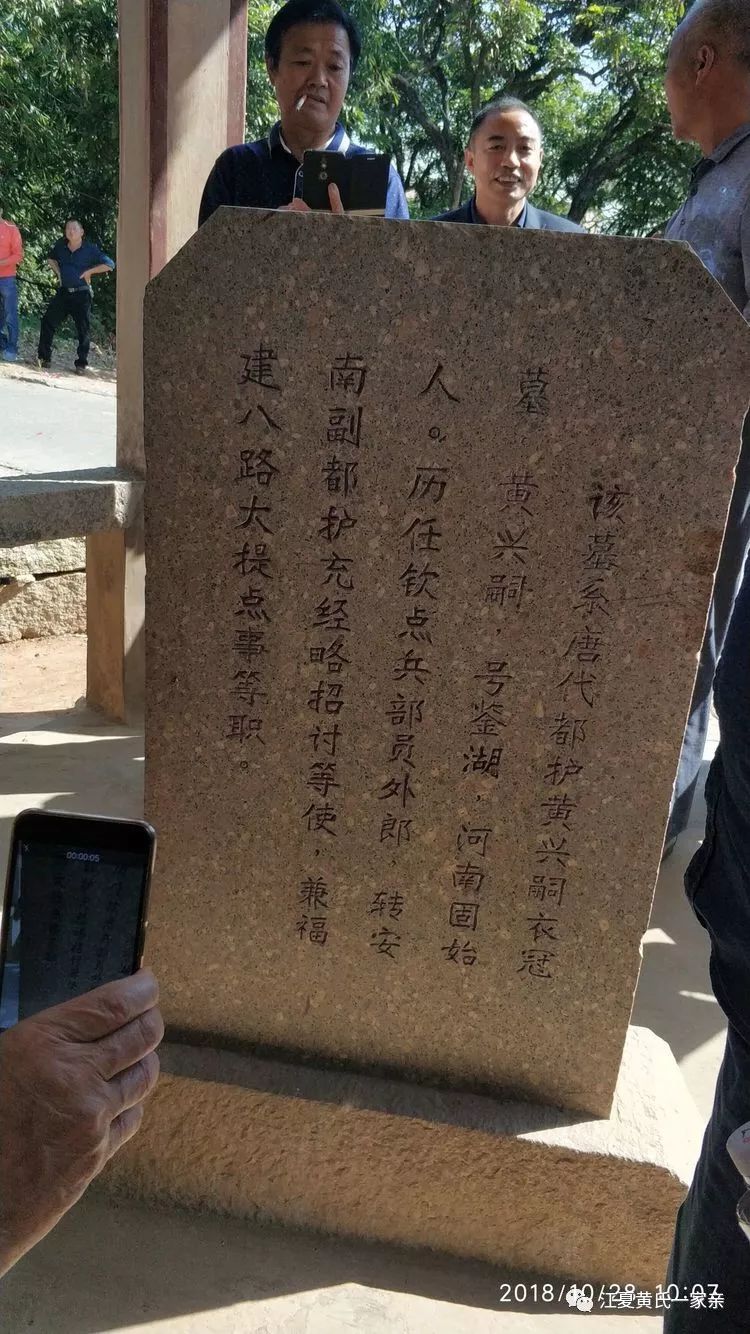 该墓系唐代都护黄兴嗣衣冠
墓，黄兴嗣，号鉴湖，河南固始
人。历任钦点兵部员外郎，转安
南副都护充经略招讨等使，兼福
建八路大提点事等职。
00:00:05
2018/10/28 10:07
江夏黄氏一家亲